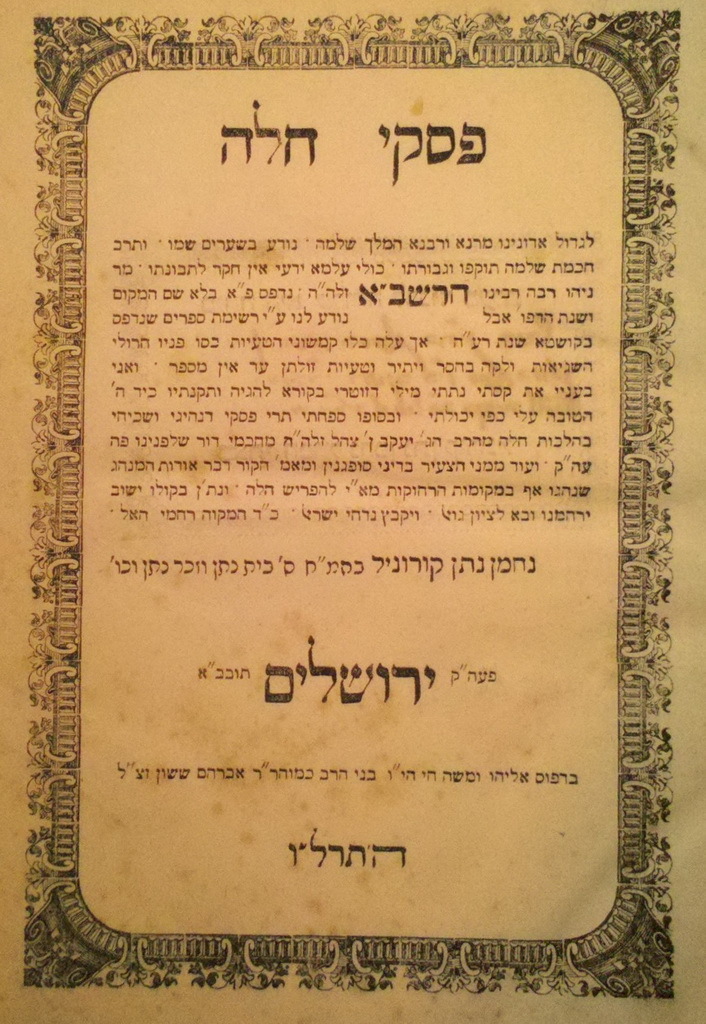 פסקי חלה
לגדול אדונינו מרנא ורבנא המלך שלמה · נודע בשערים שמו · ותרב
חכמת שלמה תוקפו וגבורתו · כולי עלמא ידעי אין חקר לתבונתו · מר
ניהו רבה רבינו הרשב״א זלה״ה · נדפס פ״א בלא שם המקום
ושנת הדפו׳ אבל נודע לנו ע״י רשימת ספרים שנדפס
בקושטא שנת רע״ח · אך עלה כלו קמשוני הטעיות כסו פניו חרולי
השגיאות ולקה בהסר ויתיר וטעיות זולתן עד אין מספר · ואני
בעניי את קסתי נתתי מילי דזוטרי בקורא להגיה ותקנתיו כיד ה׳
הטובה עלי כפי יכולתי · ובסופו ספחתי תרי פסקי דנהיגי ושכיחי
בהלכות חלה מהרב הג׳ יעקב ן׳ צהל זלה״ה מחכמי דור שלפנינו פה
עה״ק · ועוד ממני הצעיר בדיני סופגנין ומאמ׳ חקור דבר אודות המנהג
שנהגו אף במקומות הרחוקות מא״י להפריש חלה · ונת״ן בקולו ישוב
ירחמנו ובא לציון גוא׳ · ויקבץ נדחי ישרא׳ · כ״ד המקוה רחמי האל ·
נחמן נתן קורוניל בהמ״ח ס׳ בית נתן וזכר נתן וכו׳
פעה״ק ירושלים תובב״א
בדפוס אליהו ומשה חי הי״ו בני הרב כמוהר״ר אברהם ששון זצ״ל
ה׳תרל״ו